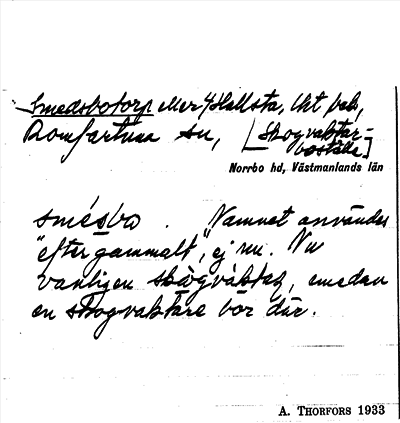 Smedsbotorp eller 4 Hallsta,
Romfartuna sn, [Skogvaktar-
boställe]
Norrbo hd, Västmanlands län
smésbo. Namnet användes
"efter gammalt", ej nu. Nu
vanligen skògvàktar, emedan
en skogvaktare bor där.
A. THORFORS 1933